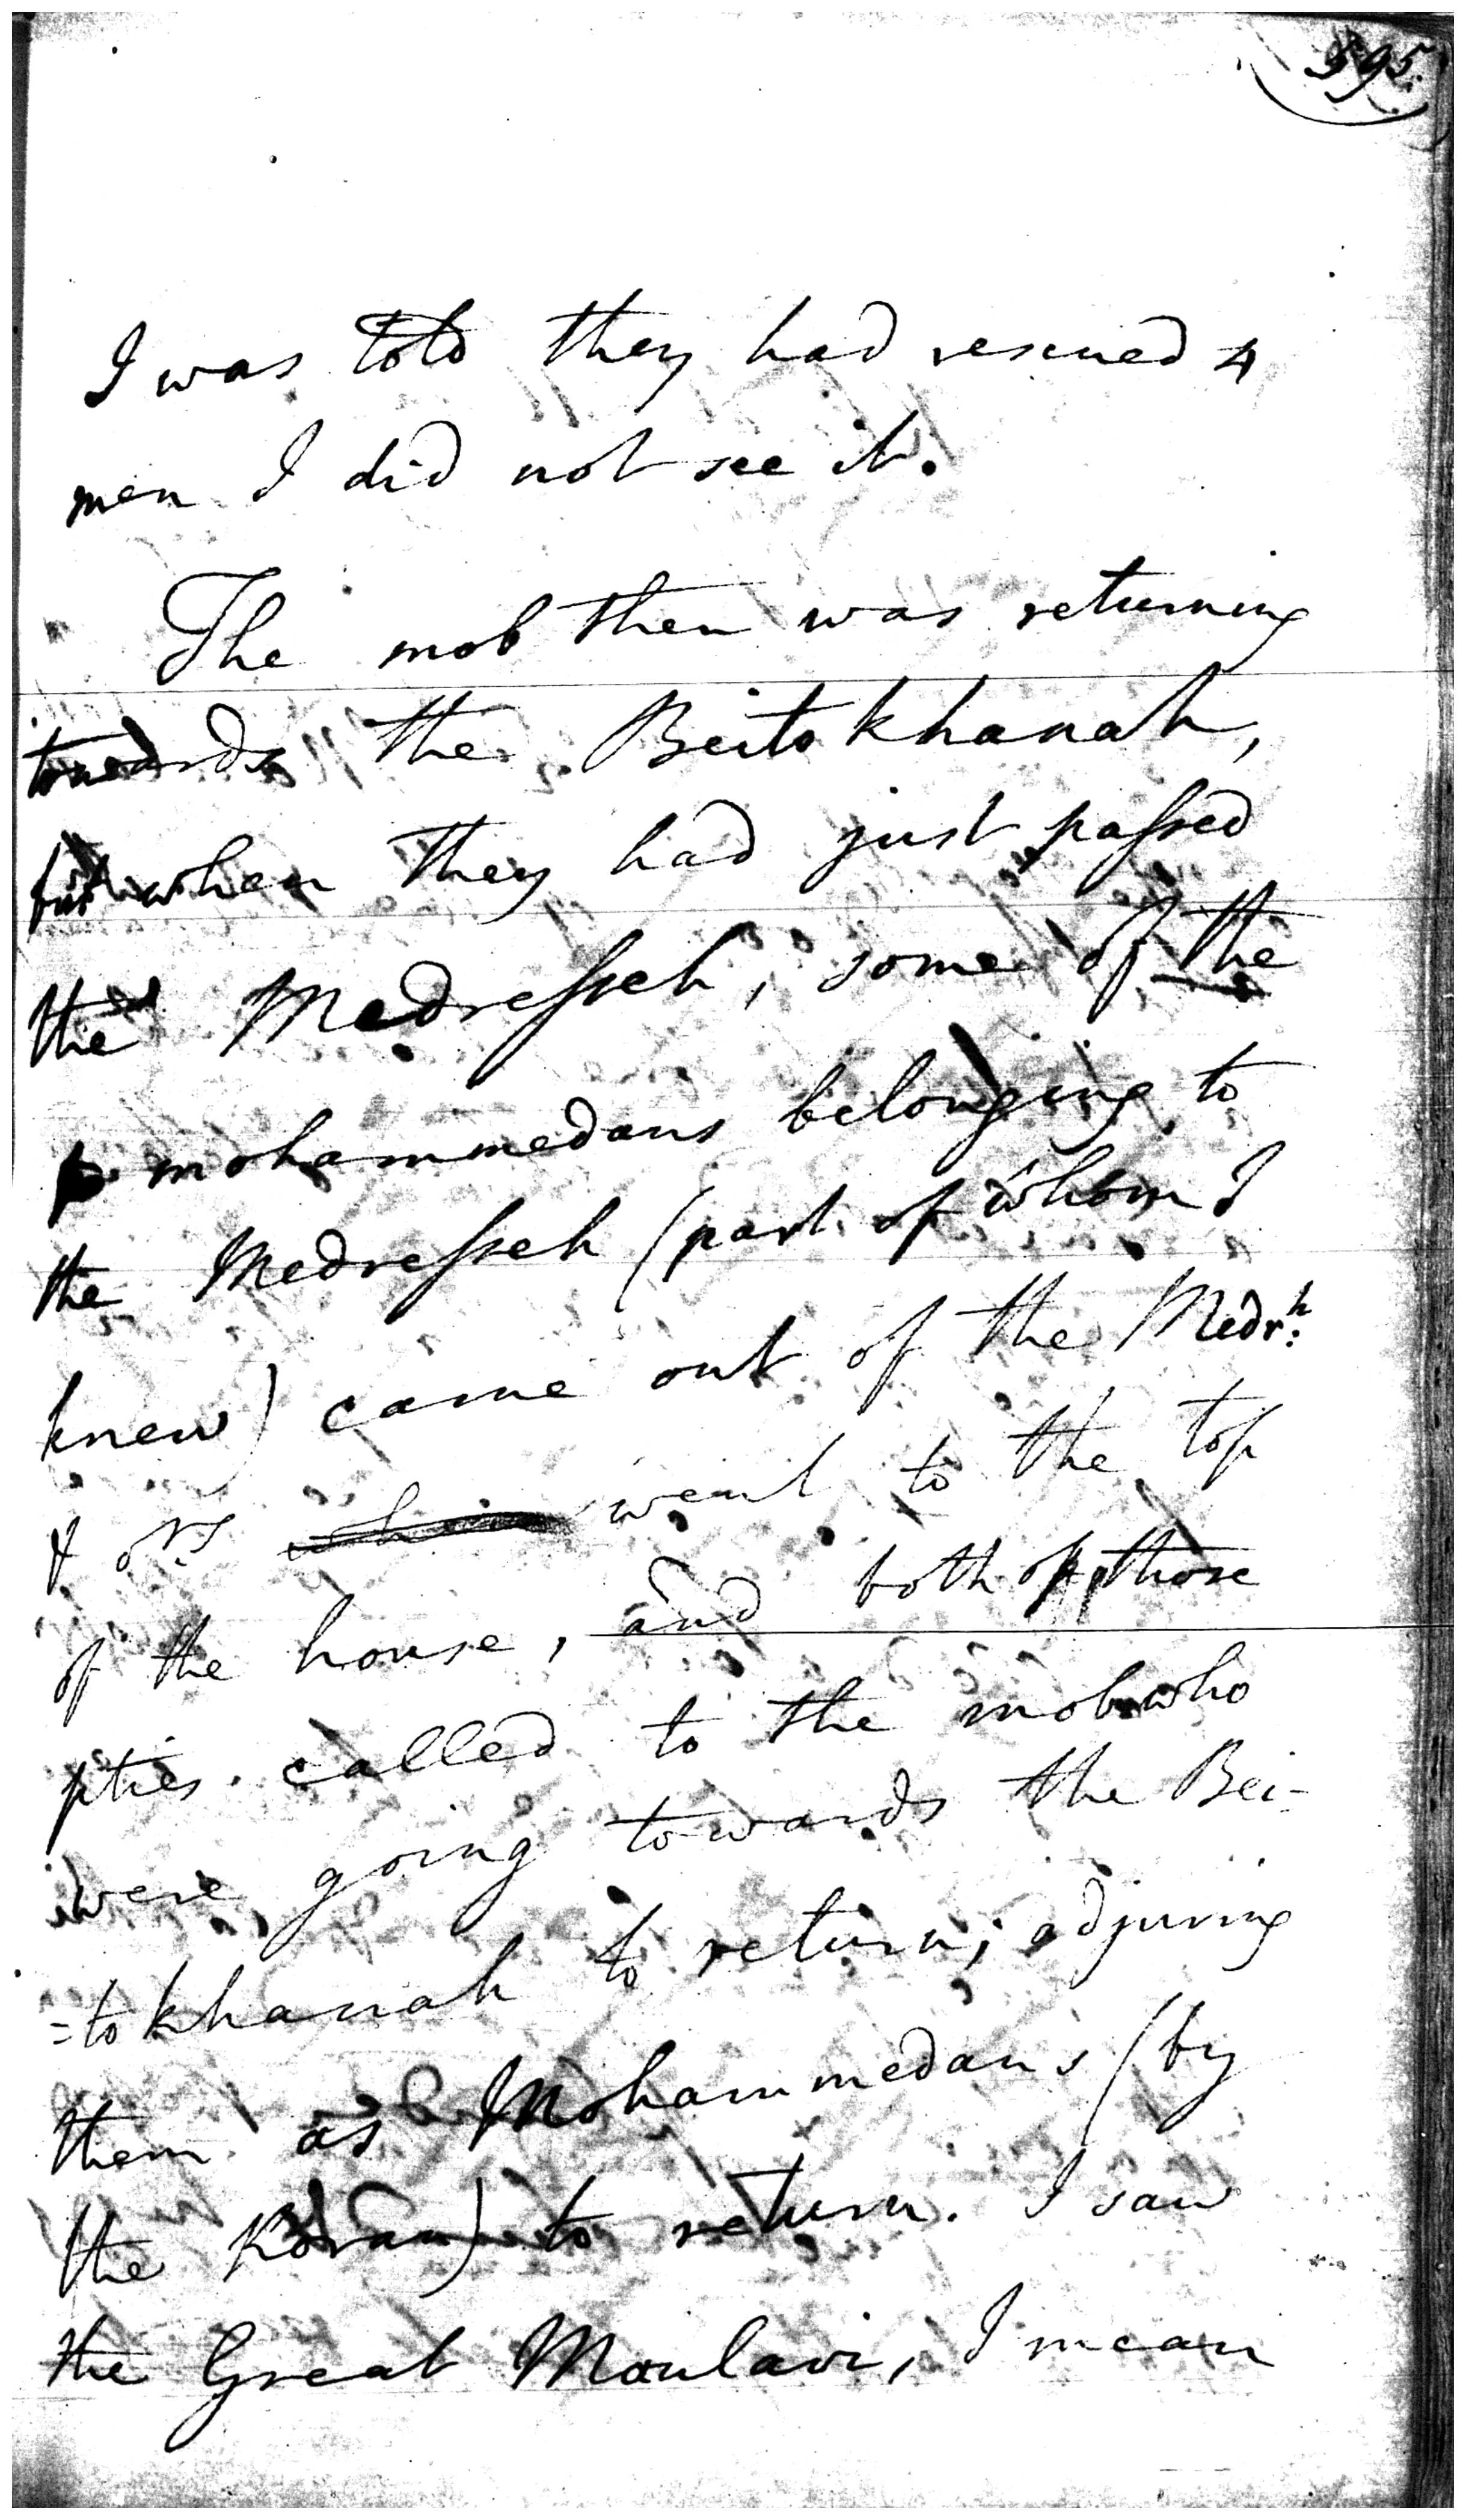 595.
I was told they had rescued 4
men I did not see it.
The mob then was returning
towards the Beitokhanah,
but when they had just passed
the Medresseh, some of the
mohammedans belonging to
the Medresseh (part of whom I
knew) came out of the Medr.h
& ors went to the top
of the house, and both of those
pties. called to the mob who
were going towards the Bei-
=tokhanah to return; adjuring
them as Mohammedans (by
the Koran) to return. I saw
the Great Moulavi, I mean